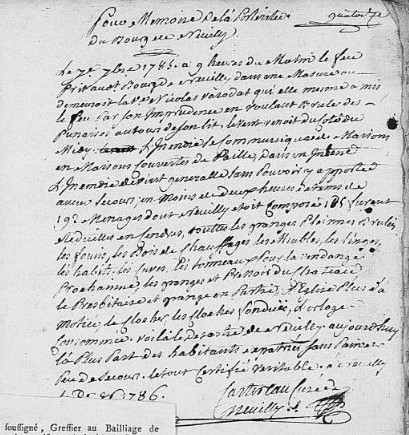 Pour Memoire de la
du Bourg de Neuilly.
Le 7e. 7bre 1785. à 9 heures du Matin le feu
Prit au Bourg de Neuilly dans une Masure ou
demeuroit la Ve. Nicolas qui elle mesme a mis
le feu par son Imprudence en voulant Bruler des
Punaises autour de son lit. le vent venoit du côté du
Midy. L'Incendie se communiqua de Maisons
en Maisons couvertes de Paille, dans un
L'Incendie devient generalle sans Pouvoir y apporter
aucun secours, en moins de deux heures de tems de
19. Menages dont Neuilly étoit Composé 185 furent
Reduittes en Cendres, touttes les granges Pleinnes Brulés,
les fours, les Bois de Chauffages, les Meubles, les linges,
les habits, les cuves, les tonneaux Pour la vendange
Prochainne, les granges et Pressoir du Chateau,
le Presbitaire et grange en Partie, L'Eglise Plus de la
Motiée, le Clocher, les Cloches fondües, L'orloge
Consommée. voila le desastre de Neuilly aujourd'huy
la Plus Part des habitants sans Pain et
Peu de Secours. le tout Certifié veritable. a Neuilly
1786.
Curé de
Neuilly
soussigné, Greffier au Bailliage de